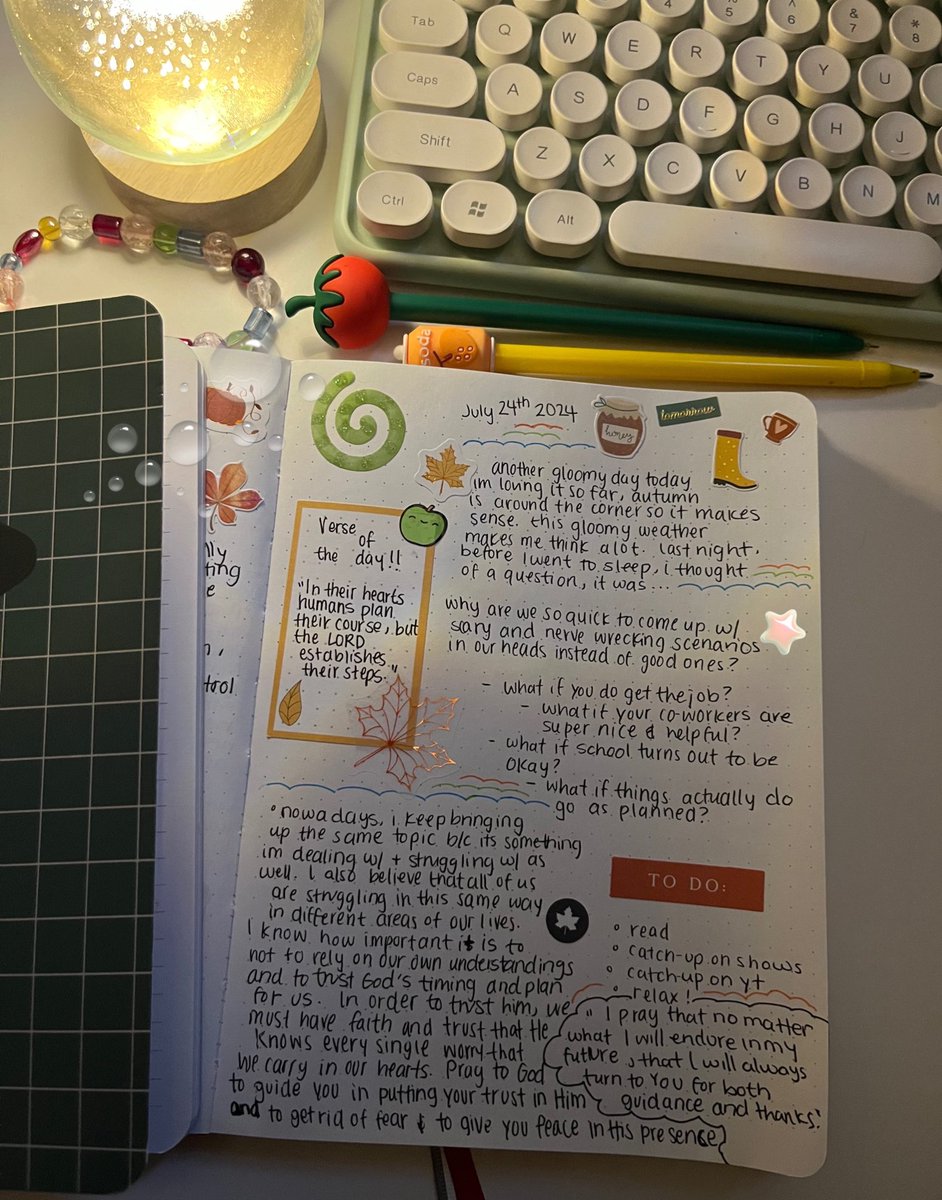 Tab
Q W E R T Y U
4 5 ^ 6 & 7 * 8
Caps
A S D F G H J
Shift
Z X C V B N M
Ctrl
Alt
soda
July 24th 2024
honey
tomorrow
another gloomy day today
im loving it so far, autumn
is around the corner so it makes
sense. this gloomy weather
makes me think alot. last night,
before I went to sleep, i thought
of a question, it was...
Verse
of
the day!!
"In their hearts
humans plan
their course, but
the LORD
establishes
their steps."
why are we so quick to come up w/
scary and nerve wrecking scenarios
in our heads instead of good ones?
- what if you do get the job?
- what if your co-workers are
super nice & helpful?
- what if school turns out to be
okay?
- what if things actually do
go as planned?
• nowadays, i keep bringing
up the same topic b/c its something
im dealing w/ + struggling w/ as
well. I also believe that all of us
are struggling in this same way
in different areas of our lives.
I know how important it is to
not to rely on our own understandings
and to trust God's timing and plan
for us. In order to trust him, we
must have faith and trust that He
knows every single worry that
we carry in our hearts. Pray to God
to guide you in putting your trust in Him
and to get rid of fear & to give you peace in His presence
TO DO:
• read
• catch-up on shows
• catch-up on yt
• relax!
"I pray that no matter
what I will endure in my
future, that I will always
turn to You for both
guidance and thanks."
tting
trol